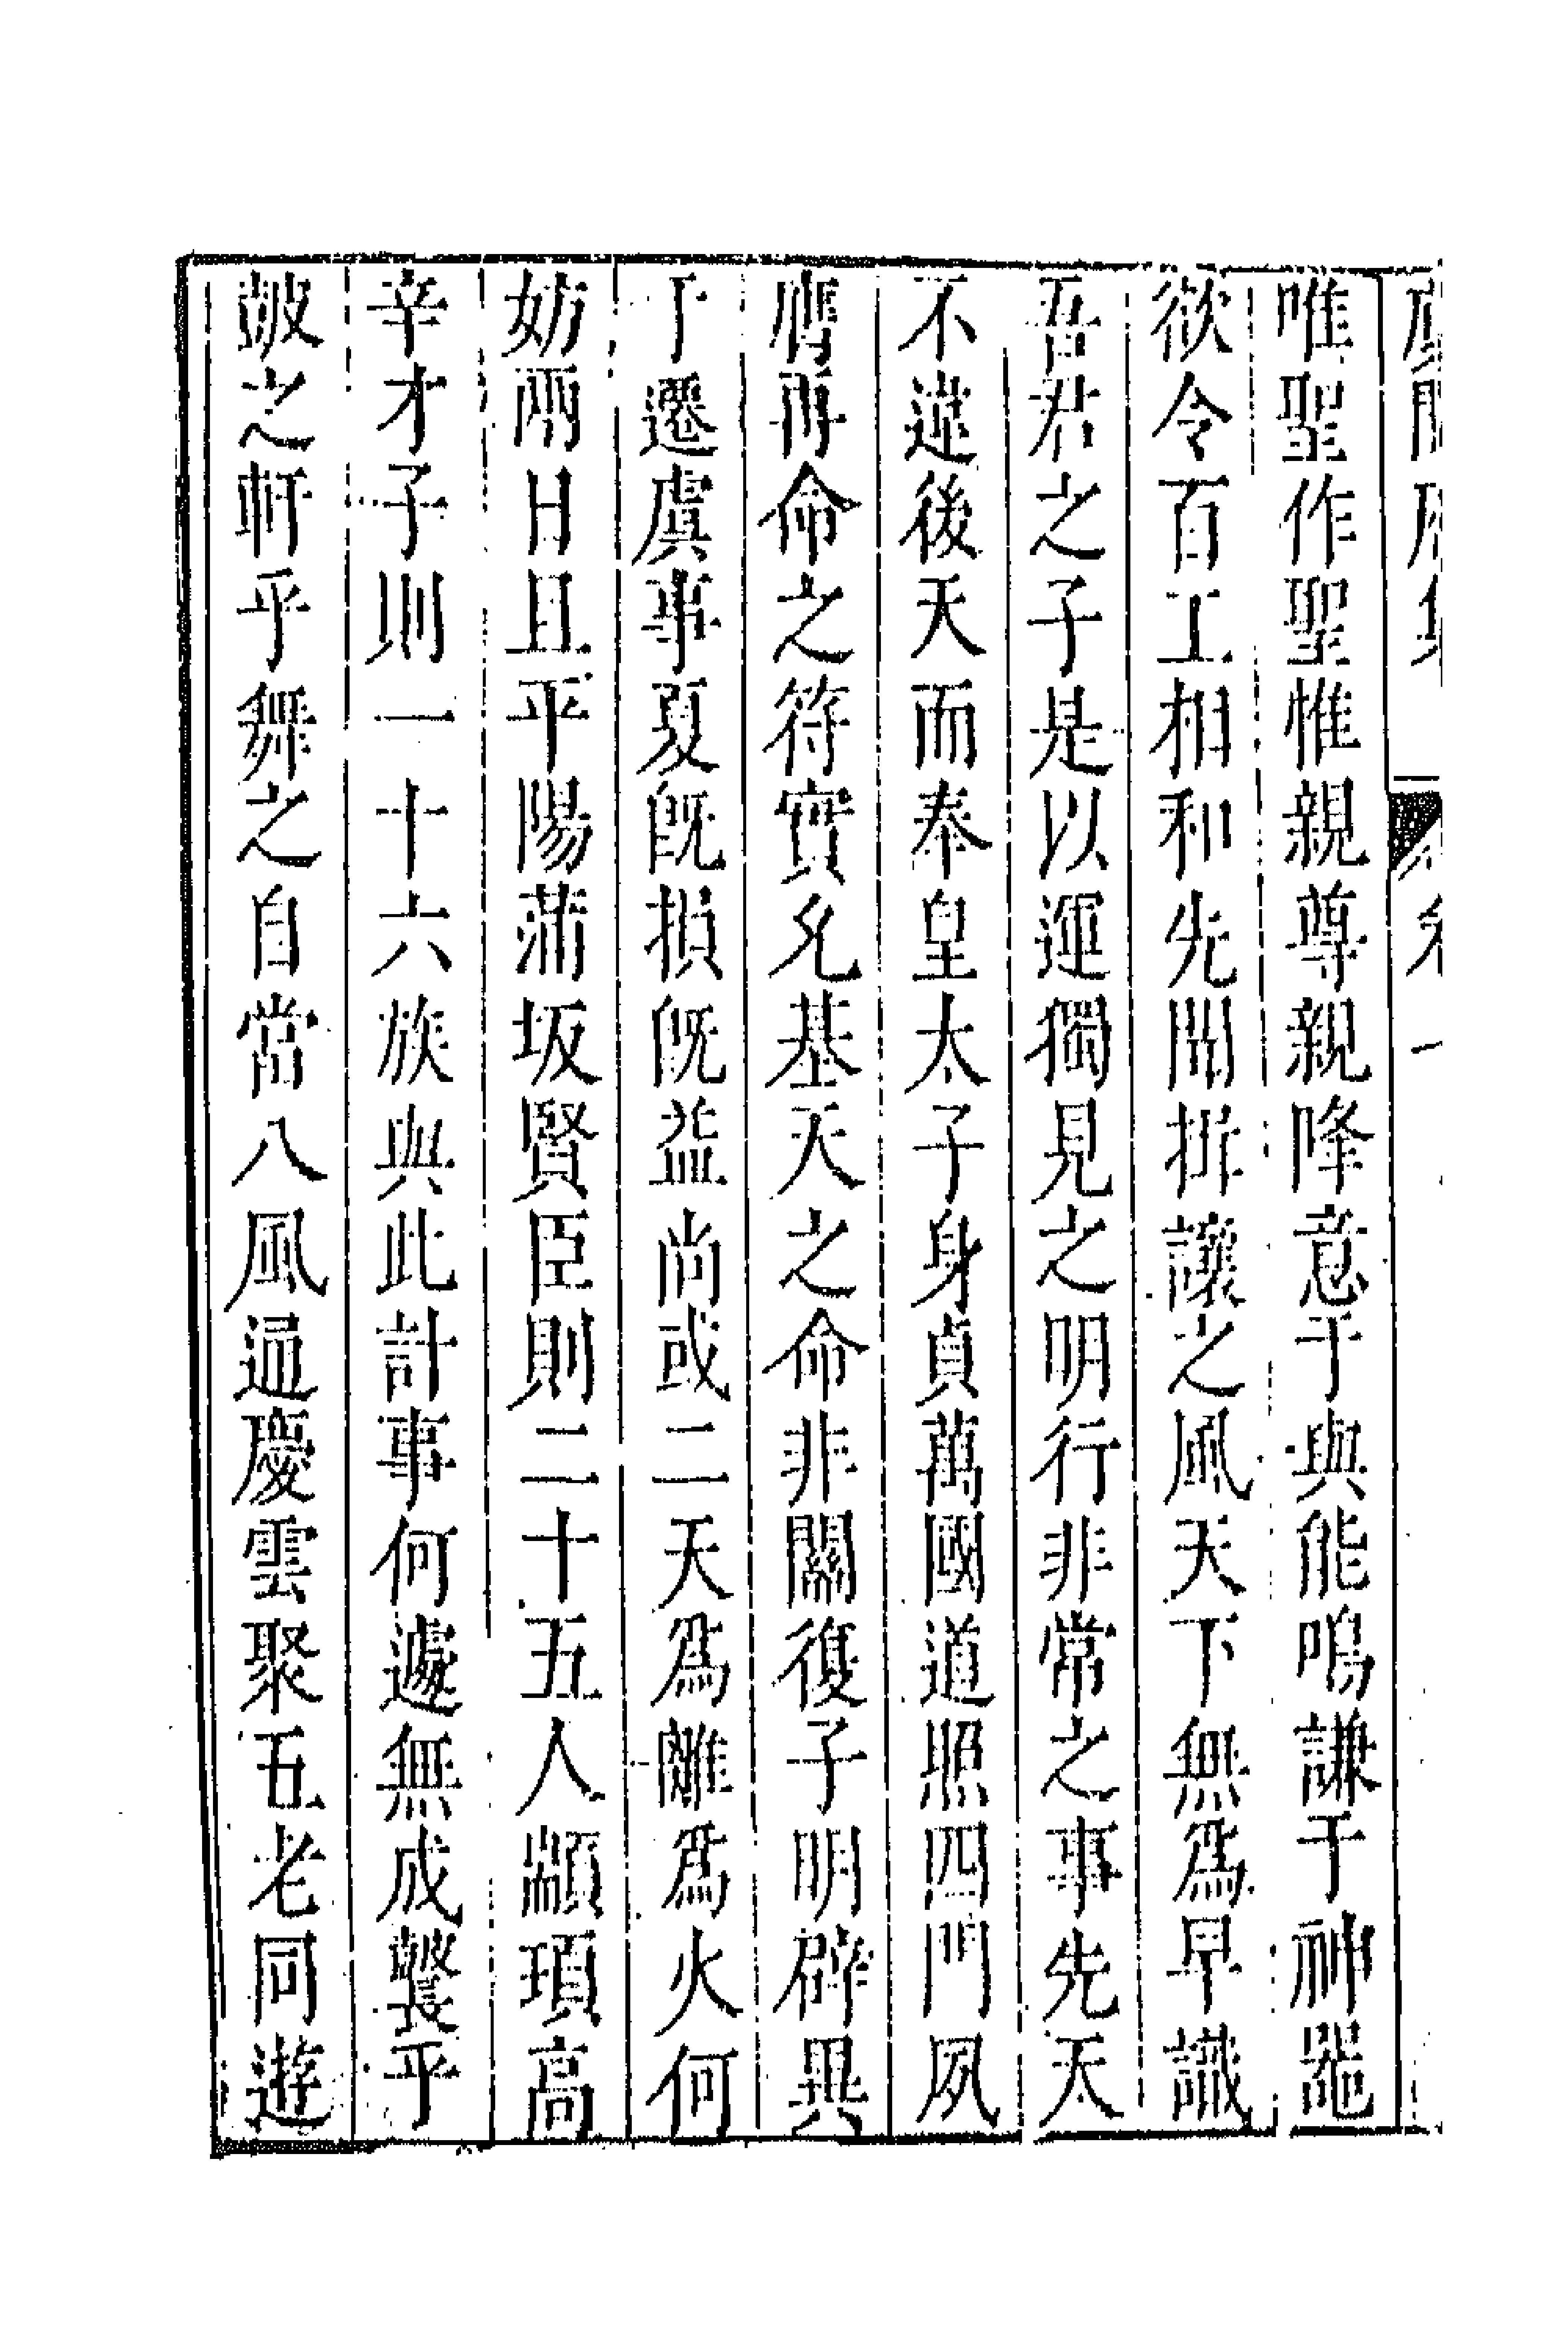 唯聖作聖惟親尊親降意于與能鳴謙于神器
欲令百工相和先聞揖讓之風天下無爲早識
吾君之子是以運獨見之明行非常之事先天
不違後天而奉皇太子身貞萬國道照四門夙
膺再命之符實允基天之命非關復子明辟異
于遷虞事夏旣損旣益尚或二天爲離爲火何
妨兩日且平陽蒲坂賢臣則二十五人顓頊高
辛才子則一十六族與此計事何遽無成鼚乎
皷之軒乎舞之自當八風通慶雲聚五老同遊